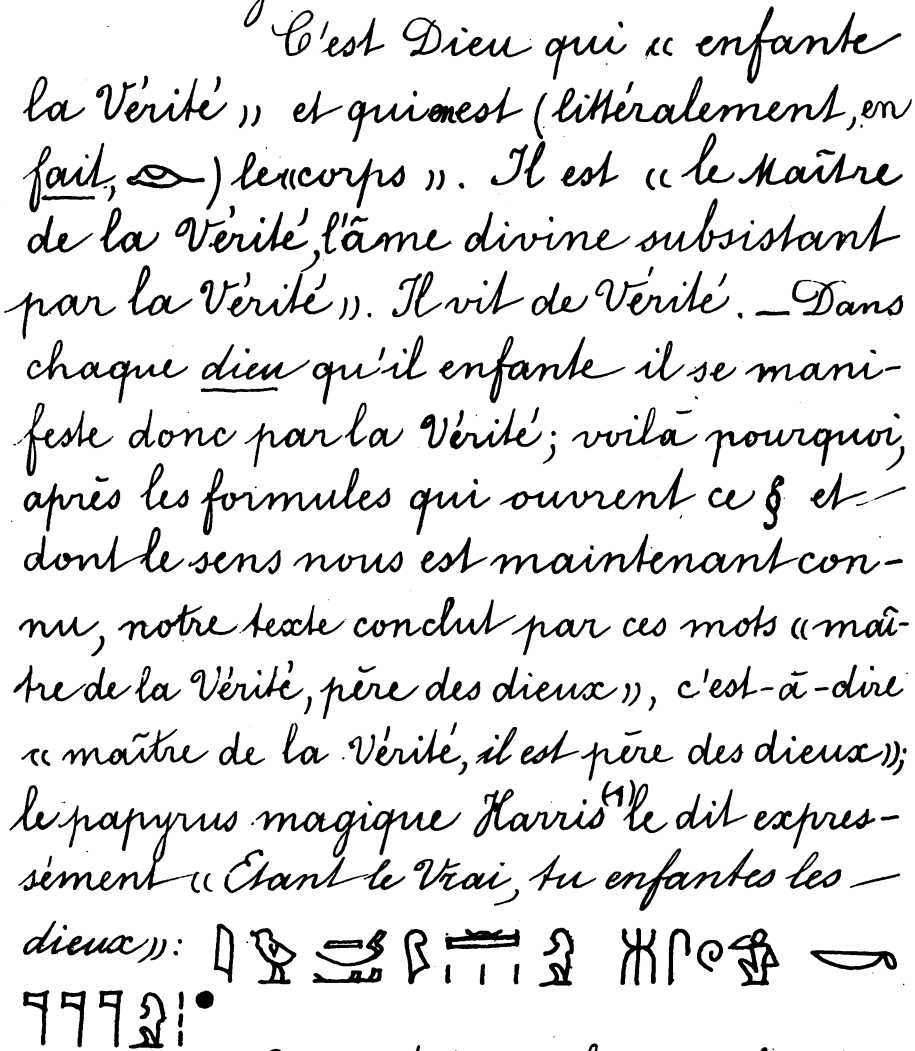 C'est Dieu qui « enfante
la Vérité » et qui en est (littéralement, en
fait, 𓁹) le « corps ». Il est « le Maître
de la Vérité, l'âme divine subsistant
par la Vérité ». Il vit de Vérité. — Dans
chaque dieu qu'il enfante il se mani-
feste donc par la Vérité; voilà pourquoi,
après les formules qui ouvrent ce § et
dont le sens nous est maintenant con-
nu, notre texte conclut par ces mots « maî-
tre de la Vérité, père des dieux », c'est-à-dire
« maître de la Vérité, il est père des dieux »;
le papyrus magique Harris (1) le dit expres-
sément « Etant le Vrai, tu enfantes les
dieux »:
𓊹𓊹𓊹